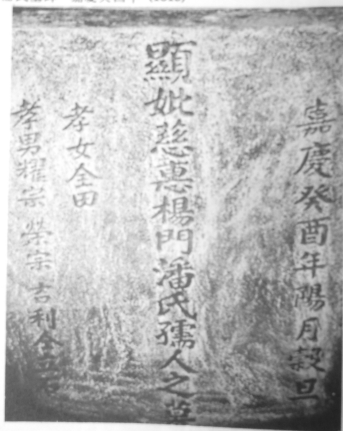 嘉慶癸酉年陽月穀旦
顯妣慈蕙楊門潘氏孺人之墓
孝女全田
孝男耀宗 榮宗 吉利 全立石